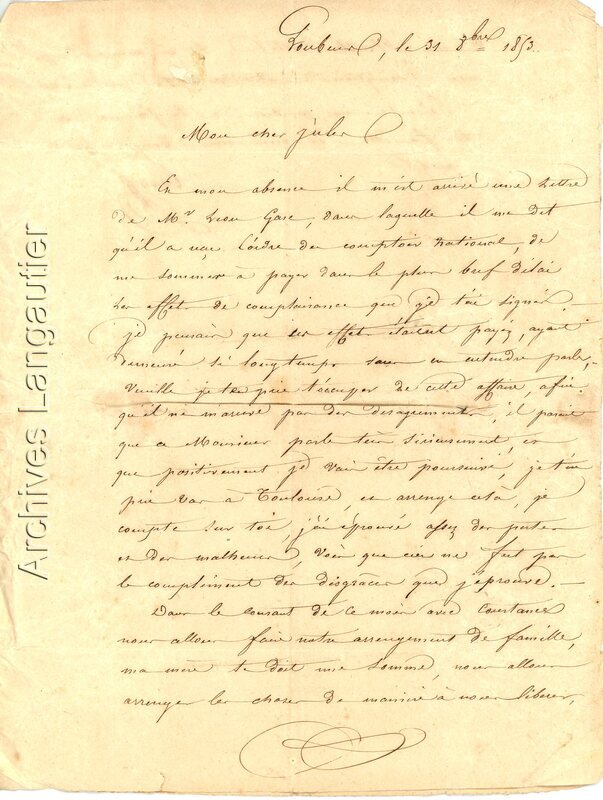 Loubens, le 31 8bre 1853.
Mon cher jules
En mon absence il m'est arrivé une lettre
de Mr Leon Gasc, dans laquelle il me dit
qu'il a reçu l'ordre du comptoir National, de
me sommer à payer dans le plus bref délai
les effets de complaisance que j'ai signés. —
je pensais que les effets étaient payés, ayant
demeuré si longtemps sans en entendre parler,
Veuille je te prie t'occuper de cette affaire, afin
qu'il ne m'arrive pas des desagrements, il parait
que ce Monsieur parle très sérieusement, et
que positivement je vais être poursuivi, je t'en
prie vas à Toulouse, et arrange cela, je
compte sur toi, j'ai éprouvé assez des pertes
et des malheurs, sans que ceci ne fut pas
le complément des disgraces que j'eprouve. —
Dans le courant de ce mois avec Constance
nous allons faire notre arrangement de famille,
ma mère te doit une somme, nous allons
arranger les choses de manière à nous libérer,
Archives Langautier